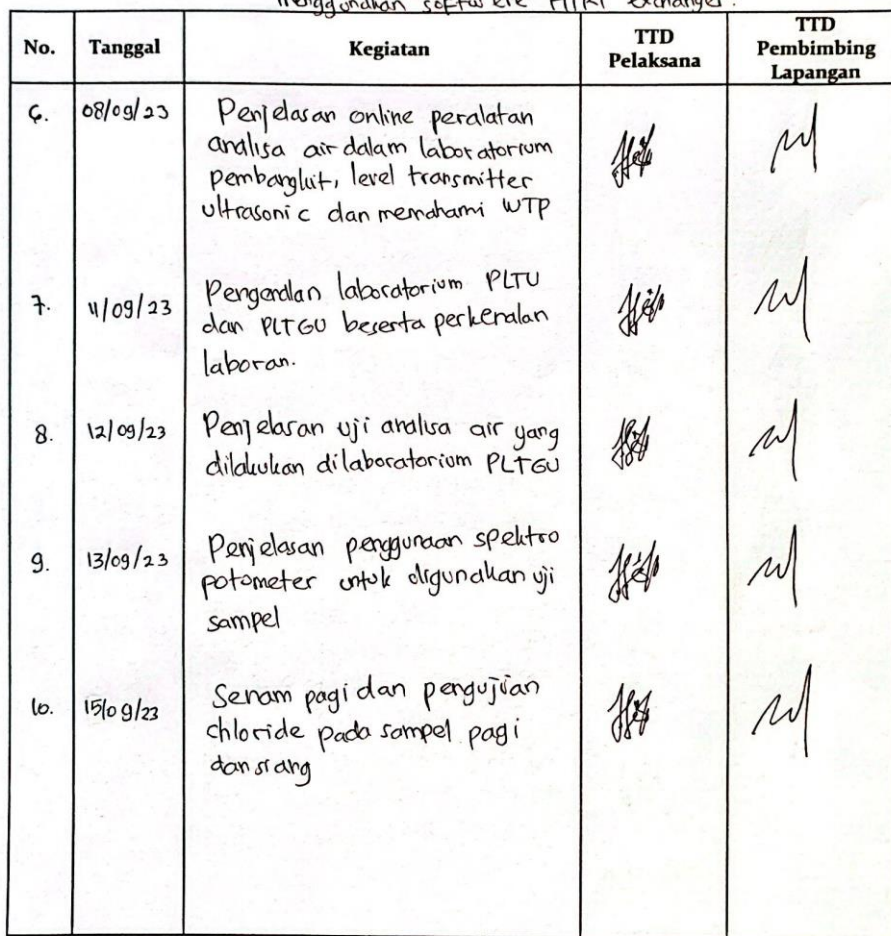 menggunakan software HTRI exchanger.
No. Tanggal Kegiatan TTD Pelaksana TTD Pembimbing Lapangan
6. 08/09/23 Penjelasan online peralatan
analisa air dalam laboratorium
pembangkit, level transmitter
ultrasonic dan memahami WTP
7. 11/09/23 Pengenalan laboratorium PLTU
dan PLTGU beserta perkenalan
laboran.
8. 12/09/23 Penjelasan uji analisa air yang
dilakukan dilaboratorium PLTGU
9. 13/09/23 Penjelasan penggunaan spektro
potometer untuk digunakan uji
sampel
10. 15/09/23 Senam pagi dan pengujian
chloride pada sampel pagi
dan siang